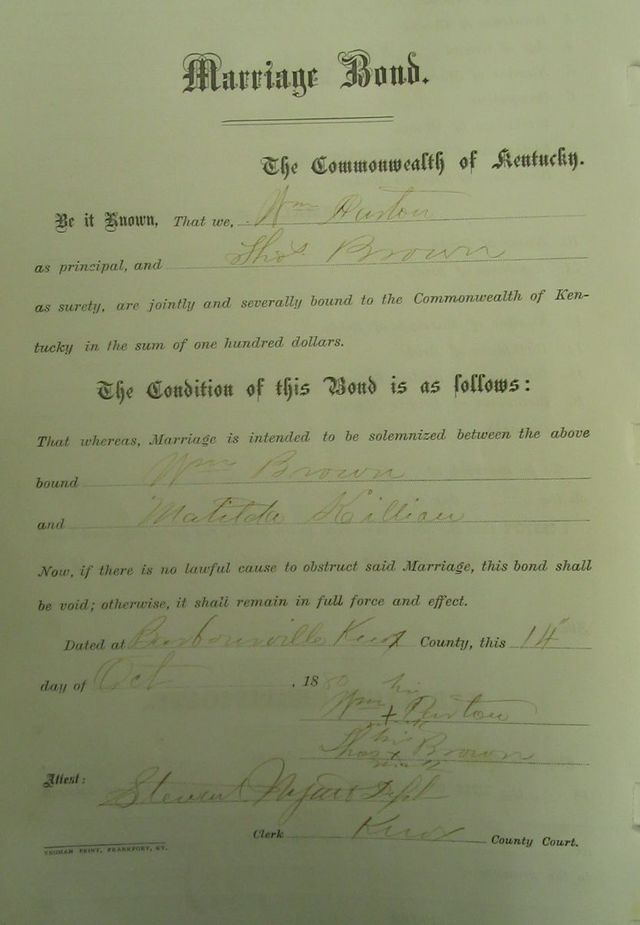 Marriage Bond.
The Commonwealth of Kentucky.
Be it Known, That we, Wm
as principal, and Thos Brown
as surety, are jointly and severally bound to the Commonwealth of Ken-
tucky in the sum of one hundred dollars.
The Condition of this Bond is as follows:
That whereas, Marriage is intended to be solemnized between the above
bound Wm Brown
and Matilda Killian
Now, if there is no lawful cause to obstruct said Marriage, this bond shall
be void; otherwise, it shall remain in full force and effect.
Dated at Barbourville Knox County, this 14
day of Oct , 18
his
Wm +
his
Thos + Brown
mark
Attest:
Clerk Knox County Court.
YEOMAN PRINT, FRANKFORT, KY.